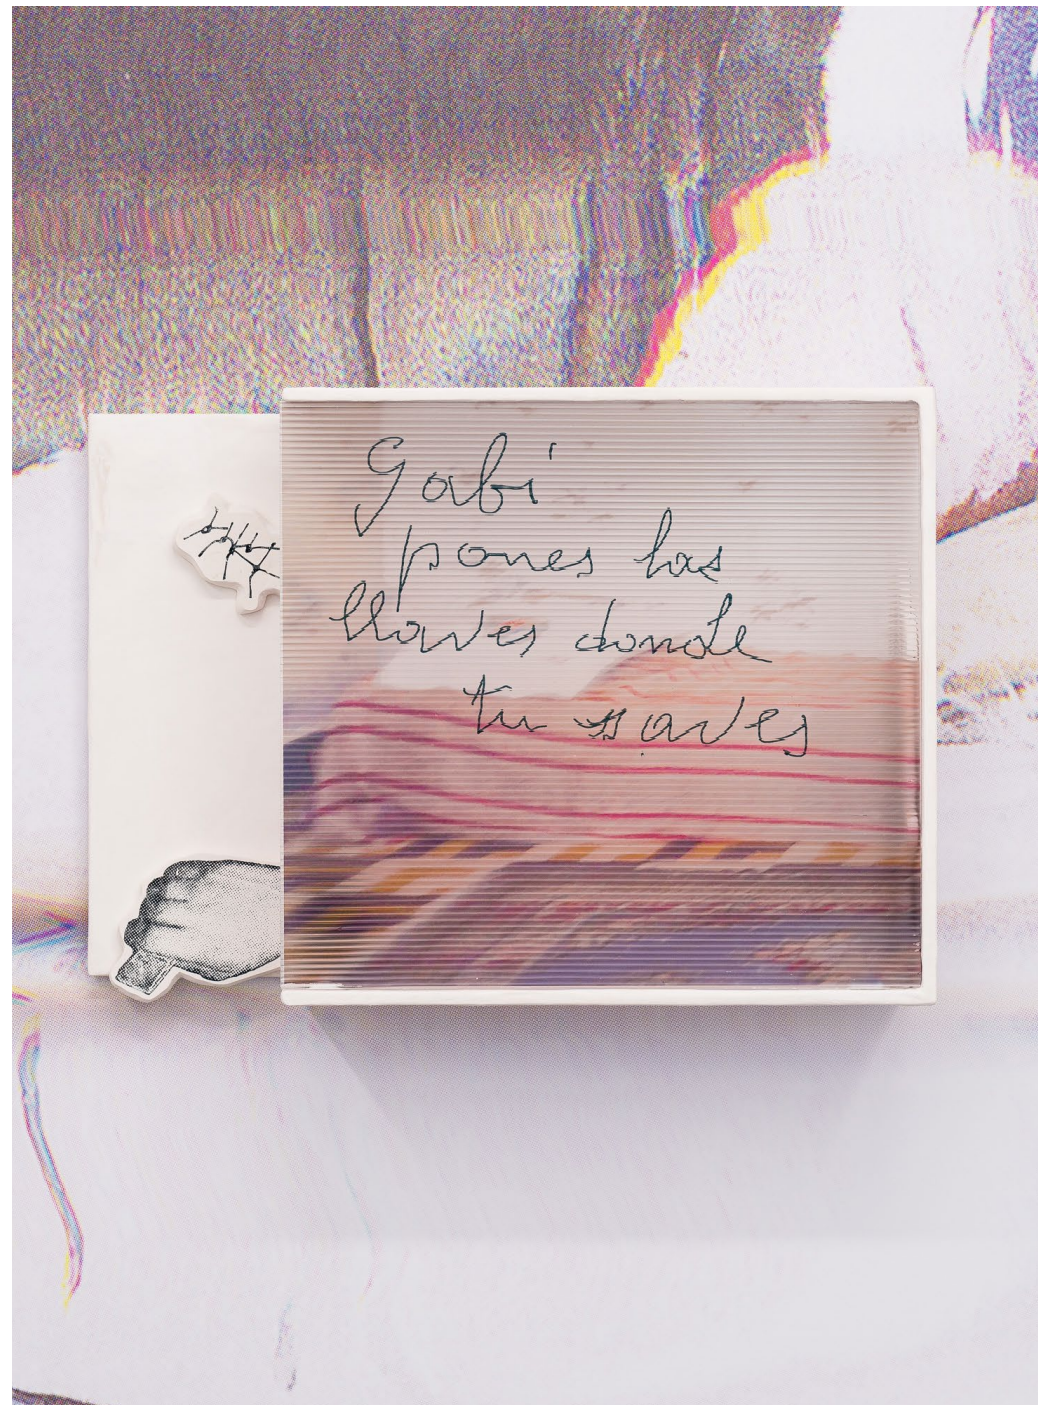 Gabi
pones las
llaves donde
tu saves